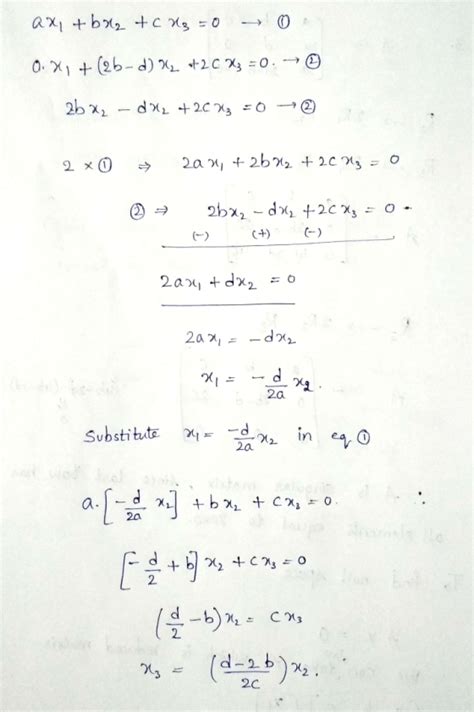 ax₁ + bx₂ + cx₃ = 0 → ①
0. x₁ + (2b-d) x₂ + 2cx₃ = 0. → ②
2bx₂ - dx₂ + 2cx₃ = 0 → ②
2 × ① ⇒ 2ax₁ + 2bx₂ + 2cx₃ = 0
② ⇒ 2bx₂ - dx₂ + 2cx₃ = 0 -
(-) (+) (-)
2ax₁ + dx₂ = 0
2ax₁ = -dx₂
x₁ = -d/2a x₂.
Substitute x₁ = -d/2a x₂ in eq ①
a. [-d/2a x₂] + bx₂ + cx₃ = 0. ∴
[-d/2 + b] x₂ + cx₃ = 0
(d/2 - b) x₂ = cx₃
x₃ = (d-2b/2c) x₂.